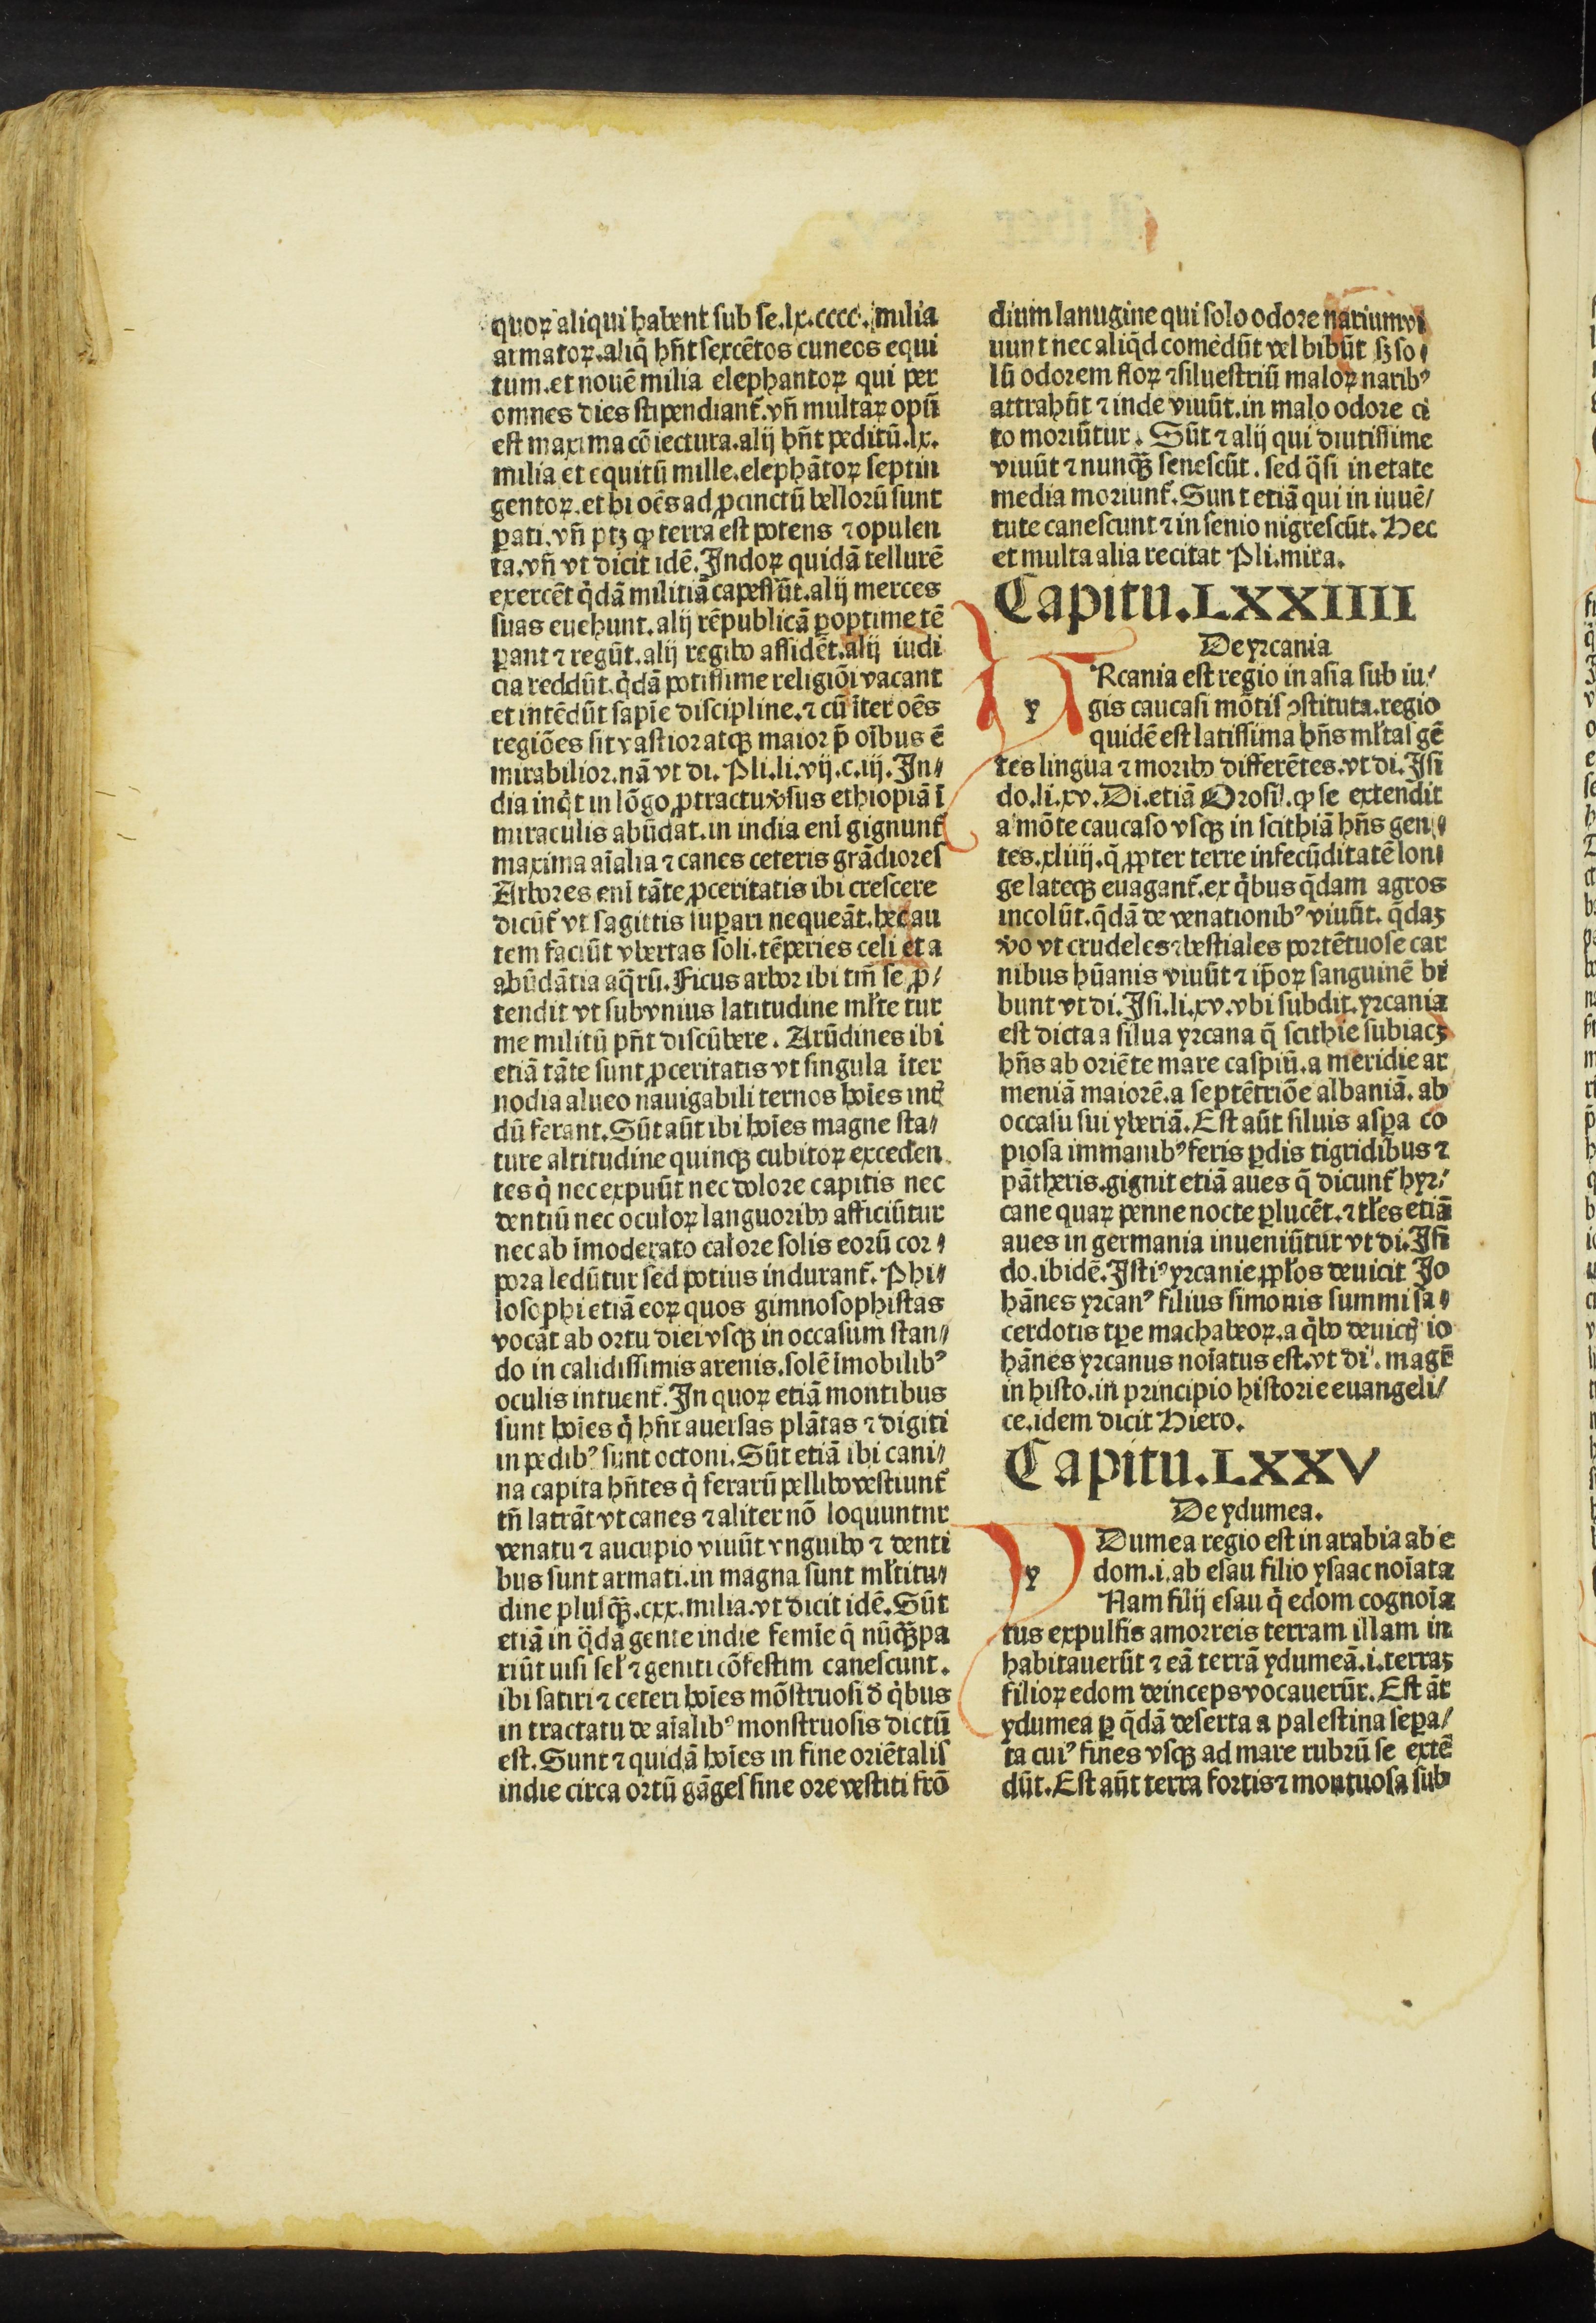 quoꝝ aliqui habent sub se.lx.cccc. milia
armatoꝝ.aliq̃ hñt sexcẽtos cuneos equi
tum.et nouẽ milia elephantoꝝ qui per
omnes dies stipendiant᷑.vñ multaꝝ opũ
est maxima cõiectura.alij hñt peditũ.lx.
milia et equitũ mille.elephãtoꝝ septin
gentoꝝ.et hi oẽs ad ꝓcinctũ bellorũ sunt
ꝑati.vñ ptꝫ ꝙ terra est potens ⁊ opulen
ta.vñ vt dicit idẽ.Indoꝝ quidã tellurẽ
exercẽt q̇dã militiã capessũt.alij merces
suas euehunt.alij rẽpublicã ꝑoptime tẽ
ꝑant ⁊ regũt.alij regibꝰ assidẽt.alij iudi
cia reddũt.q̇dã potissime religiõi vacant
et intẽdũt sapĩe discipline.⁊ cũ ĩter oẽs
regiões sit vastior atqꝫ maior p̃ oĩbus ẽ
mirabilior.nã vt di. Pli.li.vij.c.iij. In⸗
dia inq̇t in lõgo ꝓtractu ṽsus ethiopiã ĩ
miraculis abũdat.in india enĩ gignunt᷑
maxima aĩalia ⁊ canes ceteris grãdiores
Arbores enĩ tãte ꝓceritatis ibi crescere
dicũt᷑ vt sagittis suꝑari nequeãt.hec au
tem faciũt vbertas soli.tẽperies celi et a
abũdãtia aq̃rũ.Ficus arbor ibi tm̃ se ꝓ⸗
tendit vt subvnius latitudine mľte tur
me militũ pñt discũbere . Arũdines ibi
etiã tãte sunt ꝓceritatis vt singula ĩter
nodia alueo nauigabili ternos hoĩes int᷑
dũ ferant.Sũt aũt ibi hoĩes magne sta⸗
ture altitudine quinqꝫ cubitoꝝ exceden
tes q̇ nec expuũt nec dolore capitis nec
dentiũ nec oculoꝝ languoribꝰ afficiũtur
nec ab ĩmoderato calore solis eorũ cor⸗
pora ledũtur sed potius indurant᷑. Phi⸗
losophi etiã eoꝝ quos gimnosophistas
vocãt ab ortu diei vsqꝫ in occasum stan⸗
do in calidissimis arenis.solẽ ĩmobilibꝰ
oculis intuent᷑.In quoꝝ etiã montibus
sunt hoĩes q̇ hñt auersas plãtas ⁊ digiti
in pedibꝰ sunt octoni.Sũt etiã ibi cani⸗
na capita hñtes q̇ ferarũ pellibꝰ vestiunt᷑
tñ latrãt vt canes ⁊ aliter nõ loquuntnr
venatu ⁊ aucupio viuũt vnguibꝰ ⁊ denti
bus sunt armati.in magna sunt mľtitu⸗
dine plusqꝫ̃.cxx.milia.vt dicit idẽ.Sũt
etiã in q̃dã gente indie femĩe q̃ nũqꝫ̃ pa
riũt uisi seľ ⁊ geniti cõfestim canescunt.
ibi satiri ⁊ ceteri hoĩes mõstruosi đ q̇bus
in tractatu de aĩalibꝰ monstruosis dictũ
est.Sunt ⁊ quidã hoĩes in fine oriẽtalis
indie circa ortũ gãges sine ore vestiti frõ
dium lanugine qui solo odore narium vi
uunt nec aliq̇d comedũt vel bibũt sꝫ so⸗
lũ odorem floꝝ ⁊ siluestriũ maloꝝ naribꝰ
attrahũt ⁊ inde viuũt.in malo odore ci
to moriũtur . Sũt ⁊ alij qui diutissime
viuũt ⁊ nunqꝫ̃ senescũt . sed q̃si in etate
media moriunt᷑.Sunt etiã qui in iuuẽ⸗
tute canescunt ⁊ in senio nigrescũt. Hec
et multa alia recitat Pli.mira.
Capitu.LXXIIII
De yrcania
y Rcania est regio in asia sub iu⸗
gis caucasi mõtis ↄstituta.regio
quidẽ est latissima hñs mľtas gẽ
tes lingua ⁊ moribꝰ differẽtes.vt di.Isi
do.li.xv.Di.etiã Orosiꝰ. ꝙ se extendit
a mõte caucaso vsqꝫ in scithiã hñs gen⸗
tes.xliiij.q̃ ꝓpter terre infecũditatẽ lon⸗
ge lateqꝫ euagant᷑.ex q̇bus q̃dam agros
incolũt.q̃dã de venationibꝰ viuũt. q̃daꝫ
ṽo vt crudeles ⁊ bestiales portẽtuose car
nibus hũanis viuũt ⁊ ip̃oꝝ sanguinẽ bi
bunt vt di.Isi.li.xv.vbi subdit.yrcania
est dicta a silua yrcana q̃ scithie subiacꝫ
hñs ab oriẽte mare caspiũ.a meridie ar
meniã maiorẽ.a septẽtriõe albaniã. ab
occasu sui yberiã.Est aũt siluis asꝑa co
piosa immanibꝰ feris ꝑdis tigridibus ⁊
pãtheris.gignit etiã aues q̃ dicunt᷑ hyr⸗
cane quaꝝ penne nocte ꝑlucẽt.⁊ tľes etiã
aues in germania inueniũtur vt di.Isi
do.ibidẽ.Istiꝰ yrcanie ꝓpľos deuicit Jo
hãnes yrcanꝰ filius simonis summi sa⸗
cerdotis tꝑe machabeoꝝ.a q̇bꝰ deuictꝭ io
hãnes yrcanus noĩatus est.vt diꝰ. magr̃
in histo.in principio historie euangeli⸗
ce.idem dicit Hiero.
Capitu.LXXV
De ydumea.
y Dumea regio est in arabia ab e
dom.i.ab esau filio ysaac noĩata
Nam filij esau q̇ edom cognoĩa
tus expulsis amorreis terram illam in
habitauerũt ⁊ eã terrã ydumeã.i.terraꝫ
filioꝝ edom deinceps vocauerũt. Est ãt
ydumea ꝑ q̃dã deserta a palestina seꝑa⸗
ta cuiꝰ fines vsqꝫ ad mare rubrũ se extẽ
dũt.Est aũt terra fortis ⁊ montuosa sub